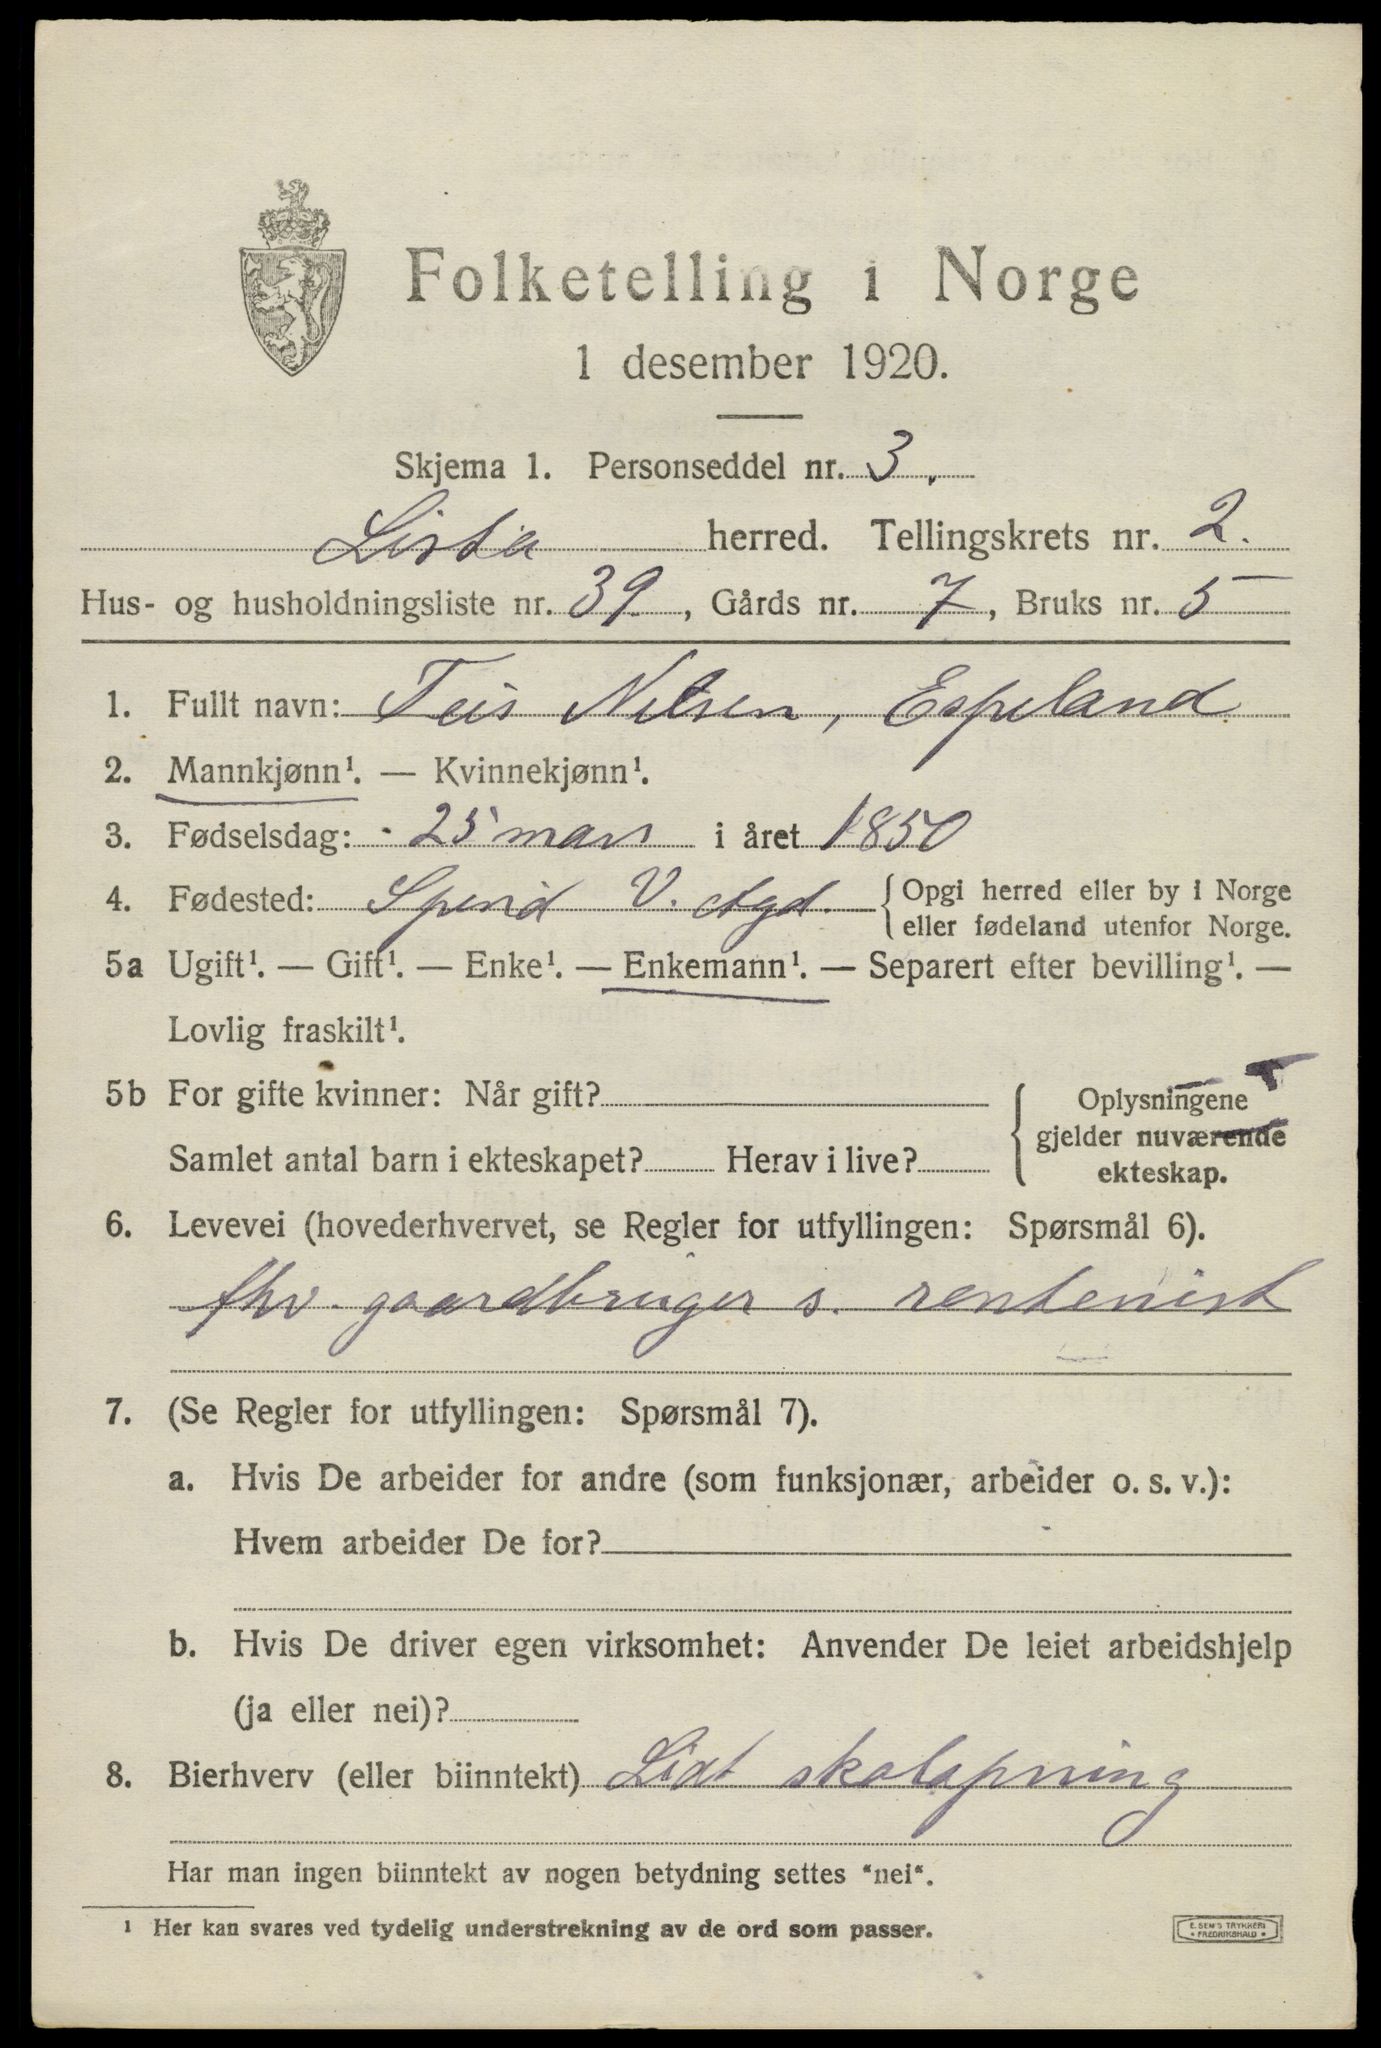 Folketelling i Norge
1 desember 1920.
Skjema 1. Personseddel nr. 3.
Lista herred. Tellingskrets nr. 2.
Hus- og husholdningsliste nr. 39, Gårds nr. 7, Bruks nr. 5
1. Fullt navn: Teis Nilsen, Espeland
2. Mannkjønn¹. — Kvinnekjønn¹.
3. Fødselsdag: 25 mars i året 1850
4. Fødested: Spind V. Agd. { Opgi herred eller by i Norge
eller fødeland utenfor Norge.
5a Ugift¹. — Gift¹. — Enke¹. — Enkemann¹. — Separert efter bevilling¹. —
Lovlig fraskilt¹.
5b For gifte kvinner: Når gift?
Samlet antal barn i ekteskapet? Herav i live?
Oplysningene
gjelder nuværende
ekteskap.
6. Levevei (hovederhvervet, se Regler for utfyllingen: Spørsmål 6).
fhv. gaardbruger s. rentenist
7. (Se Regler for utfyllingen: Spørsmål 7).
a. Hvis De arbeider for andre (som funksjonær, arbeider o. s. v.):
Hvem arbeider De for?
b. Hvis De driver egen virksomhet: Anvender De leiet arbeidshjelp
(ja eller nei)?
8. Bierhverv (eller biinntekt) Lidt
Har man ingen biinntekt av nogen betydning settes "nei".
¹ Her kan svares ved tydelig understrekning av de ord som passer.
E. SEM'S TRYKKERI
FREDRIKSHALD